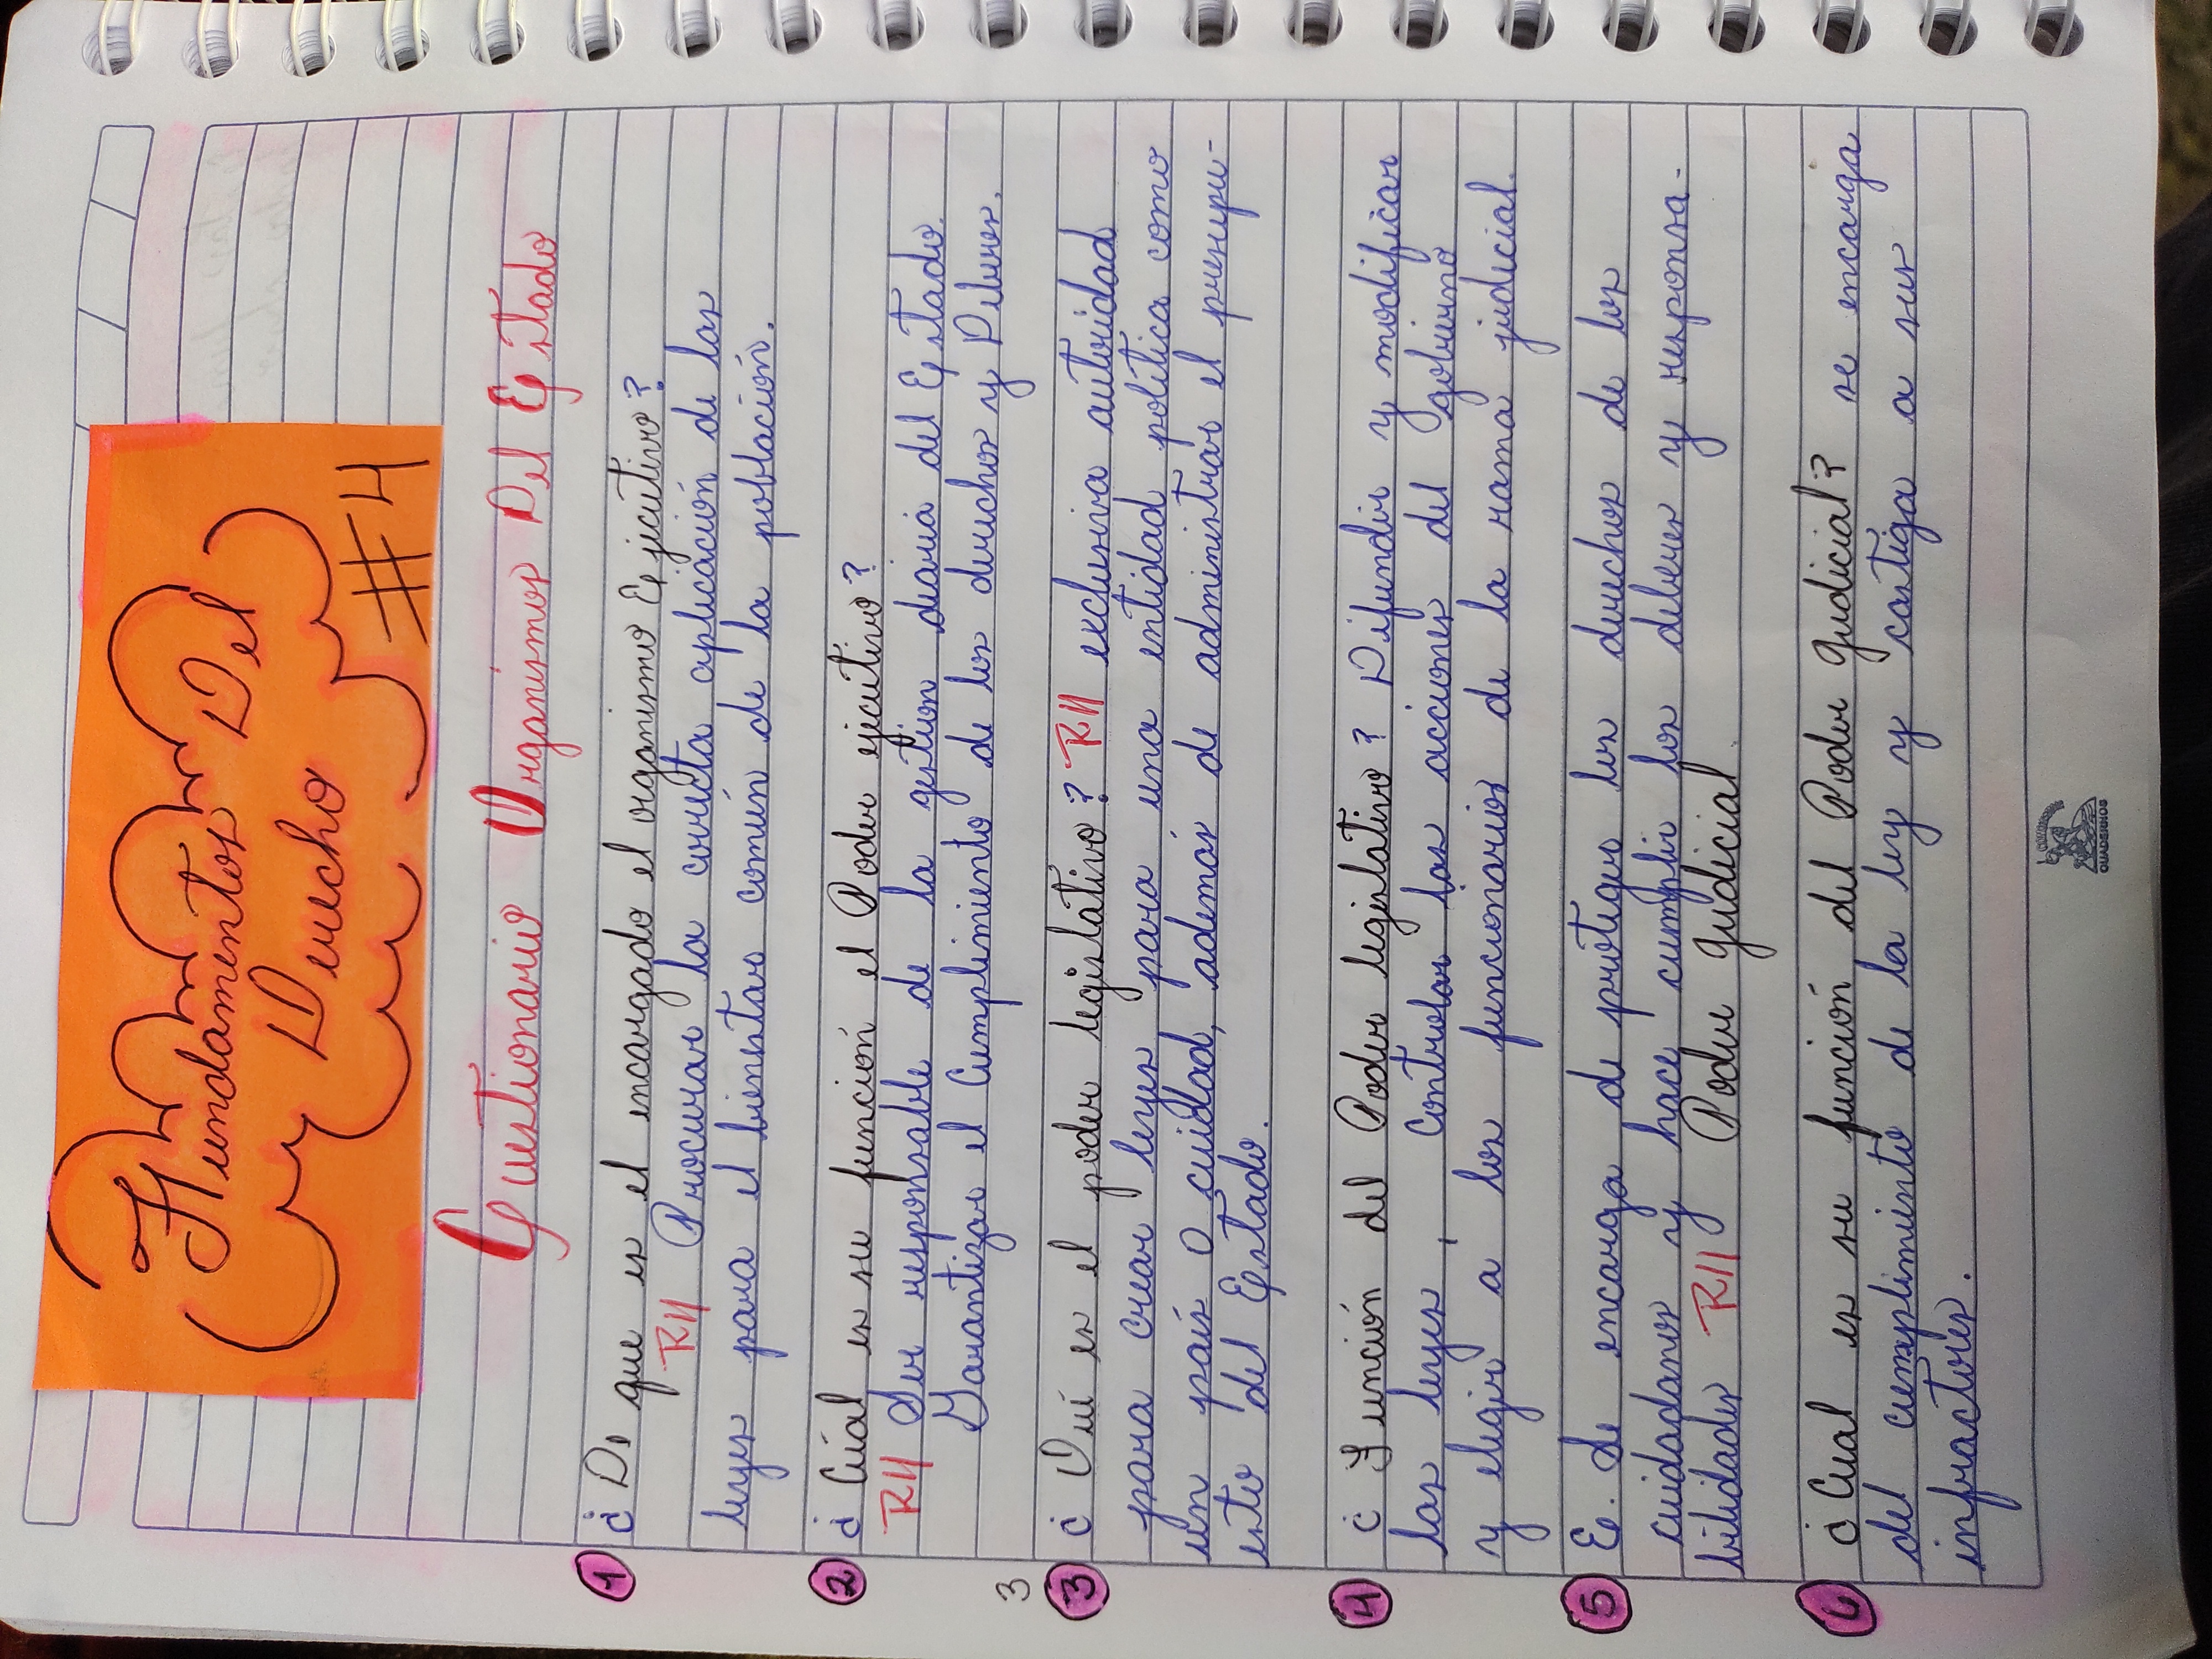 Fundamentos Del
Derecho
#4
Cuestionario Organismos Del Estado
1 ¿ De que es el encargado el organismo Ejecutivo?
R// Procurar la correcta aplicación de las
leyes para el bienestar común de la población.
2 ¿ Cúal es su función el Poder ejecutivo?
R// Ser responsable de la gestion diaria del Estado.
Garantizar el Cumplimiento de los derechos y Deberes.
3
3 ¿ Qué es el poder legislativo? R// exclusiva autoridad
para crear leyes para una entidad política como
un país o cuidad, además de administrar el presupu-
esto del Estado.
4 ¿ Función del Poder legislativo? Difundir y modificar
las leyes, Controlar las acciones del gobierno
y elegir a los funcionarios de la rama judicial.
5 E. Se encarga de proteger los derechos de los
cuidadanos y hace cumplir los deberes y responsa-
bilidades R// Poder Judicial
6 ¿ Cual es su función del Poder Judicial? se encarga
del cumplimiento de la ley y castiga a sus
infractores.
QUADERNOS